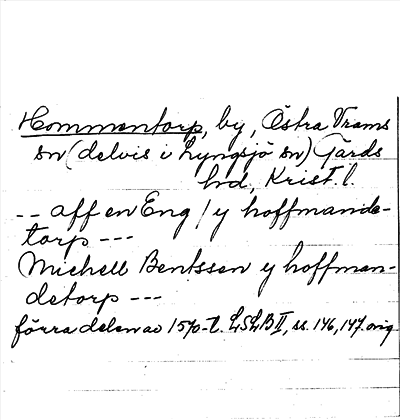 Hommentorp, by, Östra Vrams
sn (delvis i Lyngsjö sn) Gärds
hd, Krist. l.
-- aff en Eng / y hoffmande-
torp ---
Michell Bentssen y hoffman-
detorp ---
förra delen av 1570-t. LSLB II, ss. 146, 147. orig